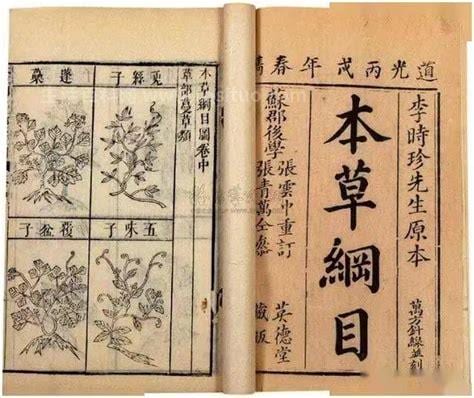 道光丙戌年春鐫
李時珍先生原本
萬方針線並刻
本草綱目
蘇郡後學
張雲中重訂
張青萬仝參
英德堂
藏板
本草綱目圖卷中
草部蔓草類
兔絲子
五味子
覆盆子